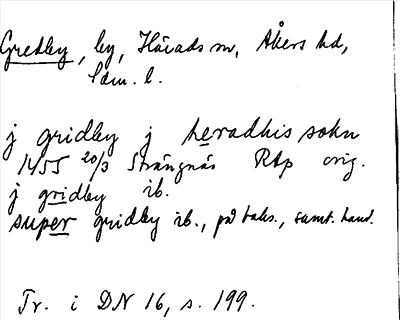 Gredby, by, Härads sn, Åkers hd,
Sdm. l.
j gridby j heradhis sokn
1455 20/3 Strängnäs RAp orig.
j gridby ib.
super gridby ib., på baks., samt. hand.
Tr. i DN 16, s. 199.